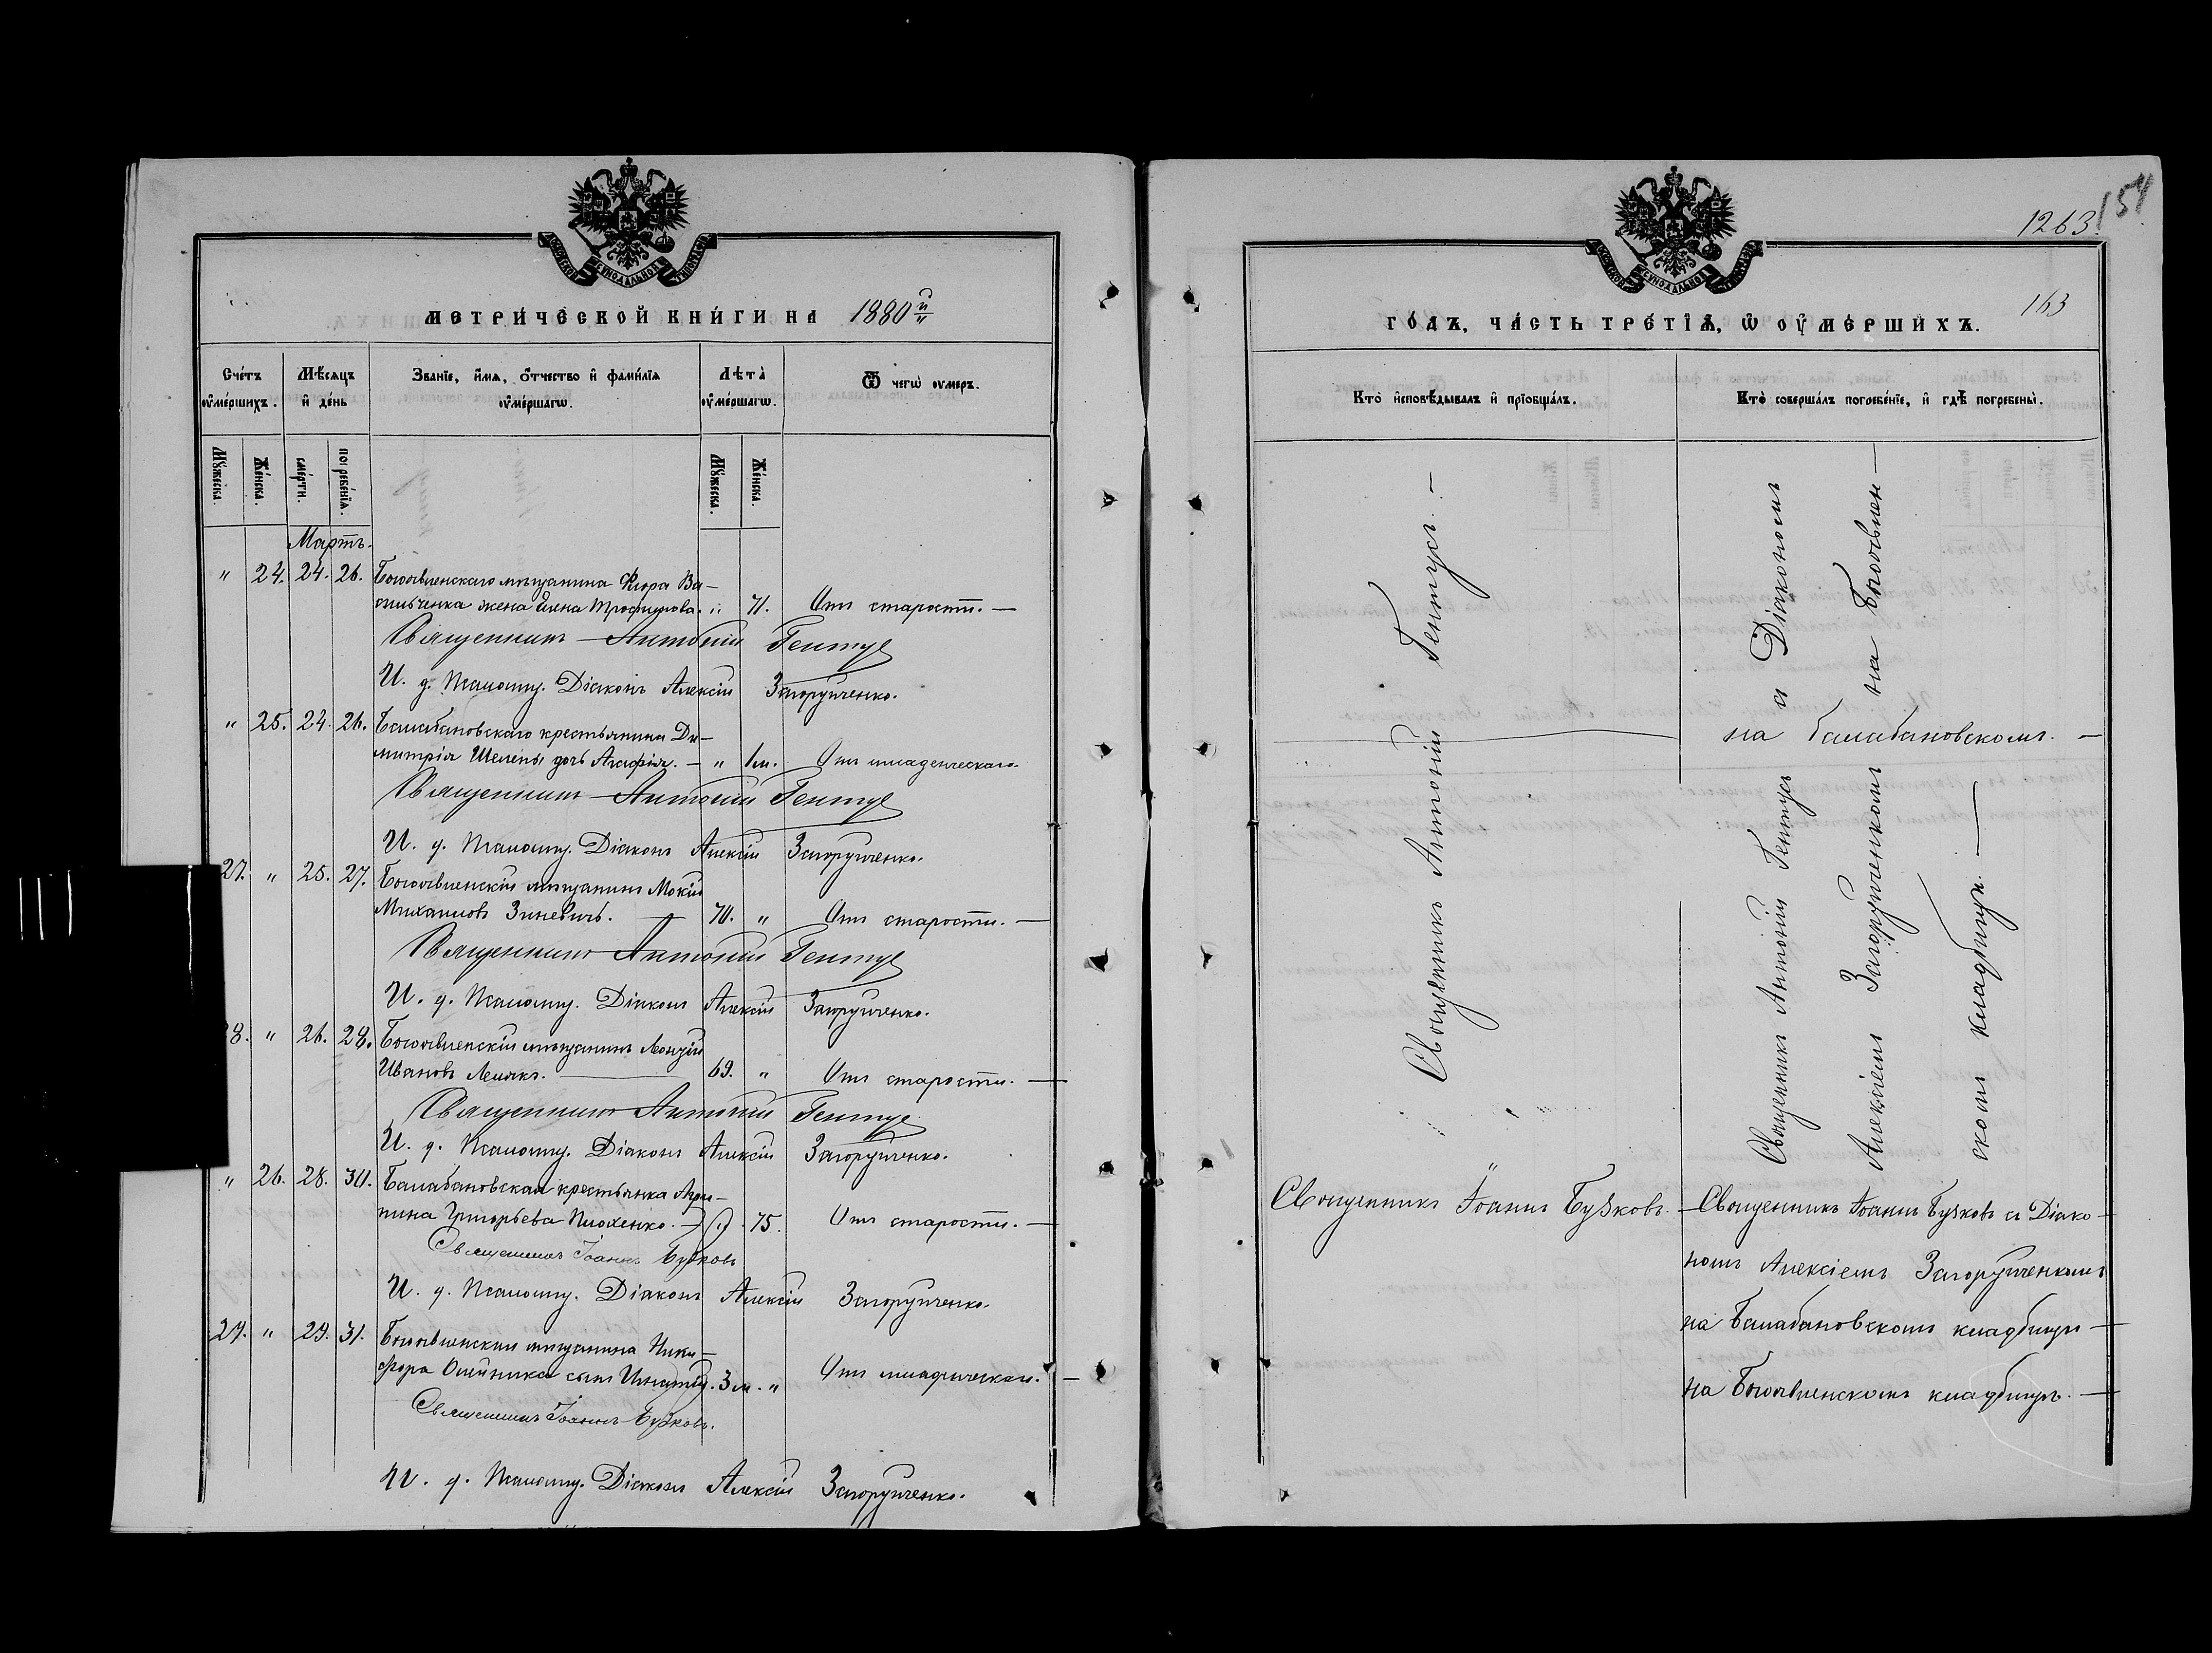 МЕТРИ́ЧЕСКОЙ КНИ́ГИ НА 1880й
Сче́тъ оу҆ме́ршихъ.
Мѣ́сяцъ и҆ де́нь
Зва́нїе, и҆́мя, ѻ҆́тчество и҆ фами́лїя оу҆ме́ршагѡ.
Лѣта̀ оу҆ме́ршагѡ.
Ѿ чегѡ̀ оу҆меръ.
Мꙋ́жеска.
Же́нска.
сме́рти.
погребе́нїѧ.
Мꙋ́жеска.
Же́нска.
Мартъ.
" 24. 24. 26. Богоявленскаго мѣщанина Кира Ва-
сильченка жена Елена Трофимова. " 71. Отъ старости. —
Священникъ Антоній Гентус
И. д. Псаломщ. Діаконъ Алексій Загоруйченко.
" 25. 24. 26. Балабановскаго крестьянина Ди-
митрія Шелепы дочь Агафія. — " 1 м. Отъ младенческаго
Священникъ Антоній Гентус
И. д. Псаломщ. Діаконъ Алексій Загоруйченко.
27. " 25. 27. Богоявленскій мѣщанинъ Мокій
Михаиловъ Зиневичъ. — 70. " Отъ старости. —
Священникъ Антоній Гентус
И. д. Псаломщ. Діаконъ Алексій Загоруйченко.
28. " 26. 28. Богоявленскій мѣщанинъ Лонгій
Ивановъ 69. " Отъ старости. —
Священникъ Антоній Гентус
И. д. Псаломщ. Діаконъ Алексій Загоруйченко.
" 26. 28. 30. Балабановская крестьянка Агри-
пина Григорьева — 75. Отъ старости. —
Священникъ Іоаннъ Бузковъ
И. д. Псаломщ. Діаконъ Алексій Загоруйченко.
29. " 29. 31. Богоявленскаго мѣщанина Ники-
фора Олейника сынъ Игнатій. 3 м. " Отъ младенческаго. —
Священникъ Іоаннъ Бузковъ.
И. д. Псаломщ. Діаконъ Алексій Загоруйченко.
1263. 151
163
ГО́ДЪ, ЧА́СТЬ ТРЕ́ТЇѦ, Ѡ҆ ОУ҆МЕ́РШИХЪ.
Кто̀ и҆сповѣ́дывалъ и҆ прїобща́лъ.
Кто̀ соверша́лъ погребе́нїе, и҆ гдѣ̀ погребены̀.
Священникъ Антоній Гентусъ. —
Священникъ Антоній Гентусъ съ Діакономъ
Алексіемъ Загоруйченкомъ на Богоявлен-
скомъ кладбищѣ. —
на балабановскомъ. —
Священникъ Іоаннъ Бузковъ.
— Священникъ Іоаннъ Бузковъ съ Діако-
номъ Алексіемъ Загоруйченкомъ
на Балабановскомъ кладбищѣ —
на Богоявленскомъ кладбищѣ. —